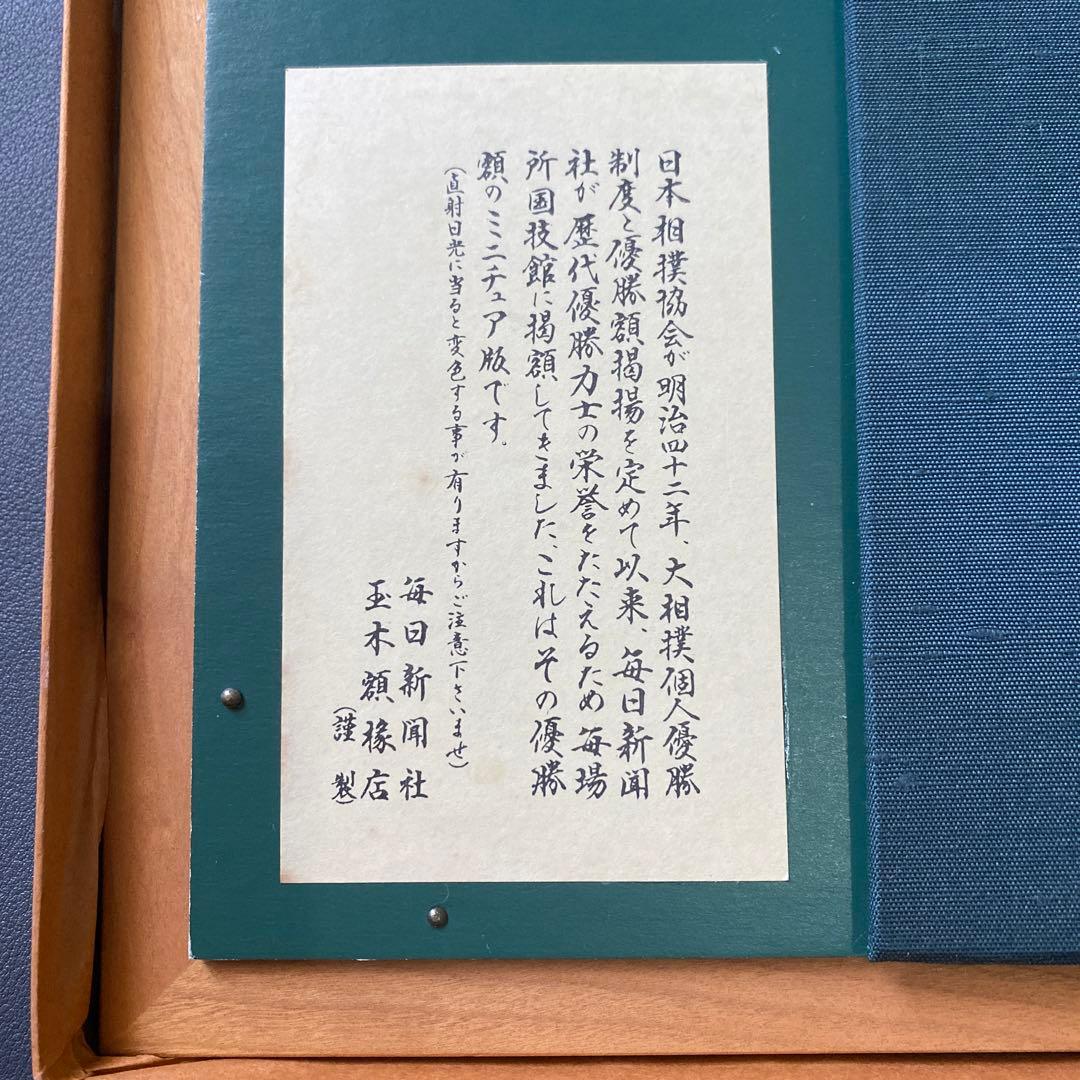 日本相撲協会が明治四十二年、大相撲個人優勝
制度と優勝額掲揚を定めて以来、毎日新聞
社が歴代優勝力士の栄誉をたたえるため毎場
所国技館に掲額してきました、これはその優勝
額のミニチュア版です。
(直射日光に当ると変色する事が有りますからご注意下さいませ)
毎日新聞社
玉木額椽店
(謹製)